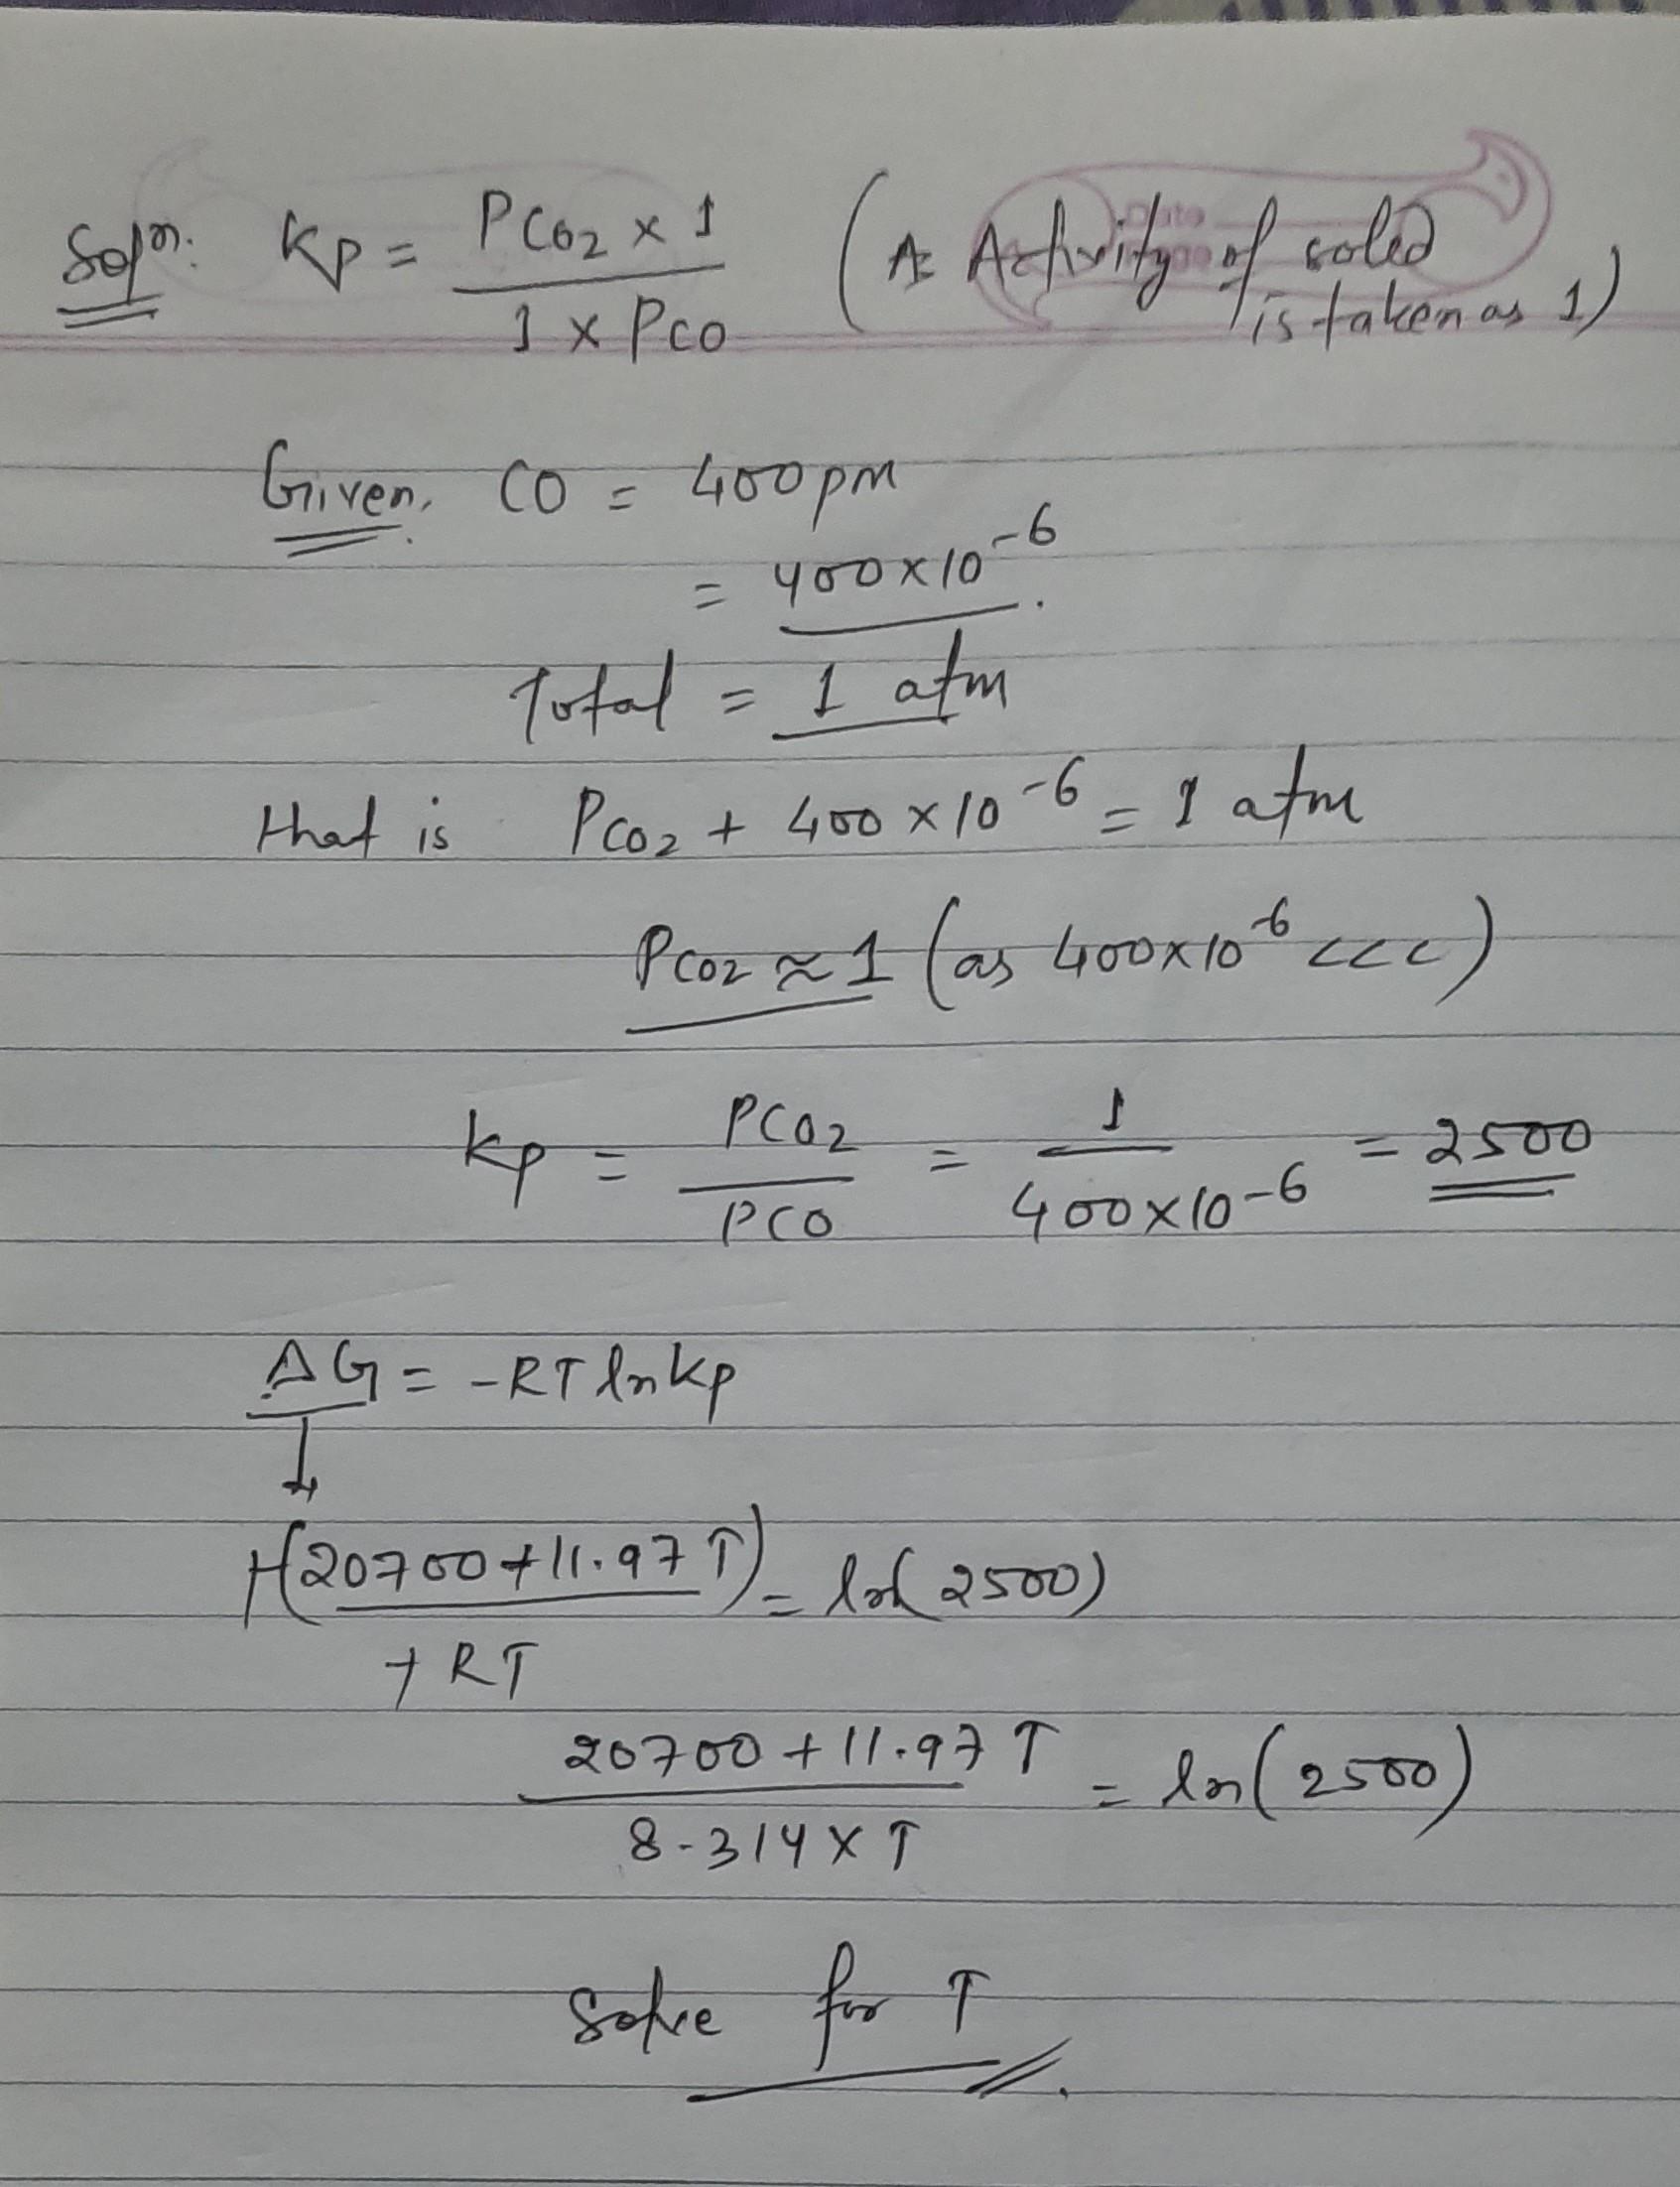 Soln. Kp = PCO2 x 1 / 1 x PCO (As Activity of solid is taken as 1)
Given, CO = 400pm
= 400x10^-6.
Total = 1 atm
that is PCO2 + 400 x 10^-6 = 1 atm
PCO2 ≈ 1 (as 400x10^-6 <<<)
Kp = PCO2 / PCO = 1 / 400x10^-6 = 2500
ΔG = -RT ln Kp
↓
+(20700+11.97 T) / +RT = ln(2500)
20700 + 11.97 T / 8.314 x T = ln(2500)
Solve for T